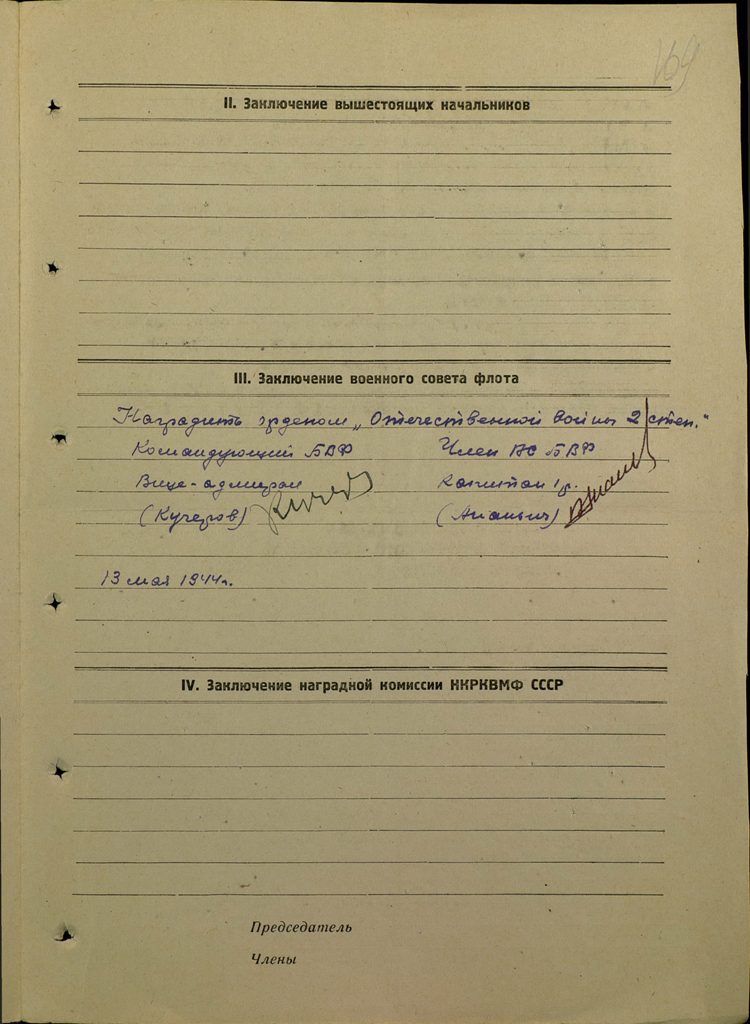 169
II. Заключение вышестоящих начальников
III. Заключение военного совета флота
Наградить орденом „Отечественной войны 2 степ."
Командующий БВФ Член ВС БВФ
Вице-адмирал Капитан 1 р.
(Кучеров) (Ананьич)
13 мая 1944г.
IV. Заключение наградной комиссии НКРКВМФ СССР
Председатель
Члены